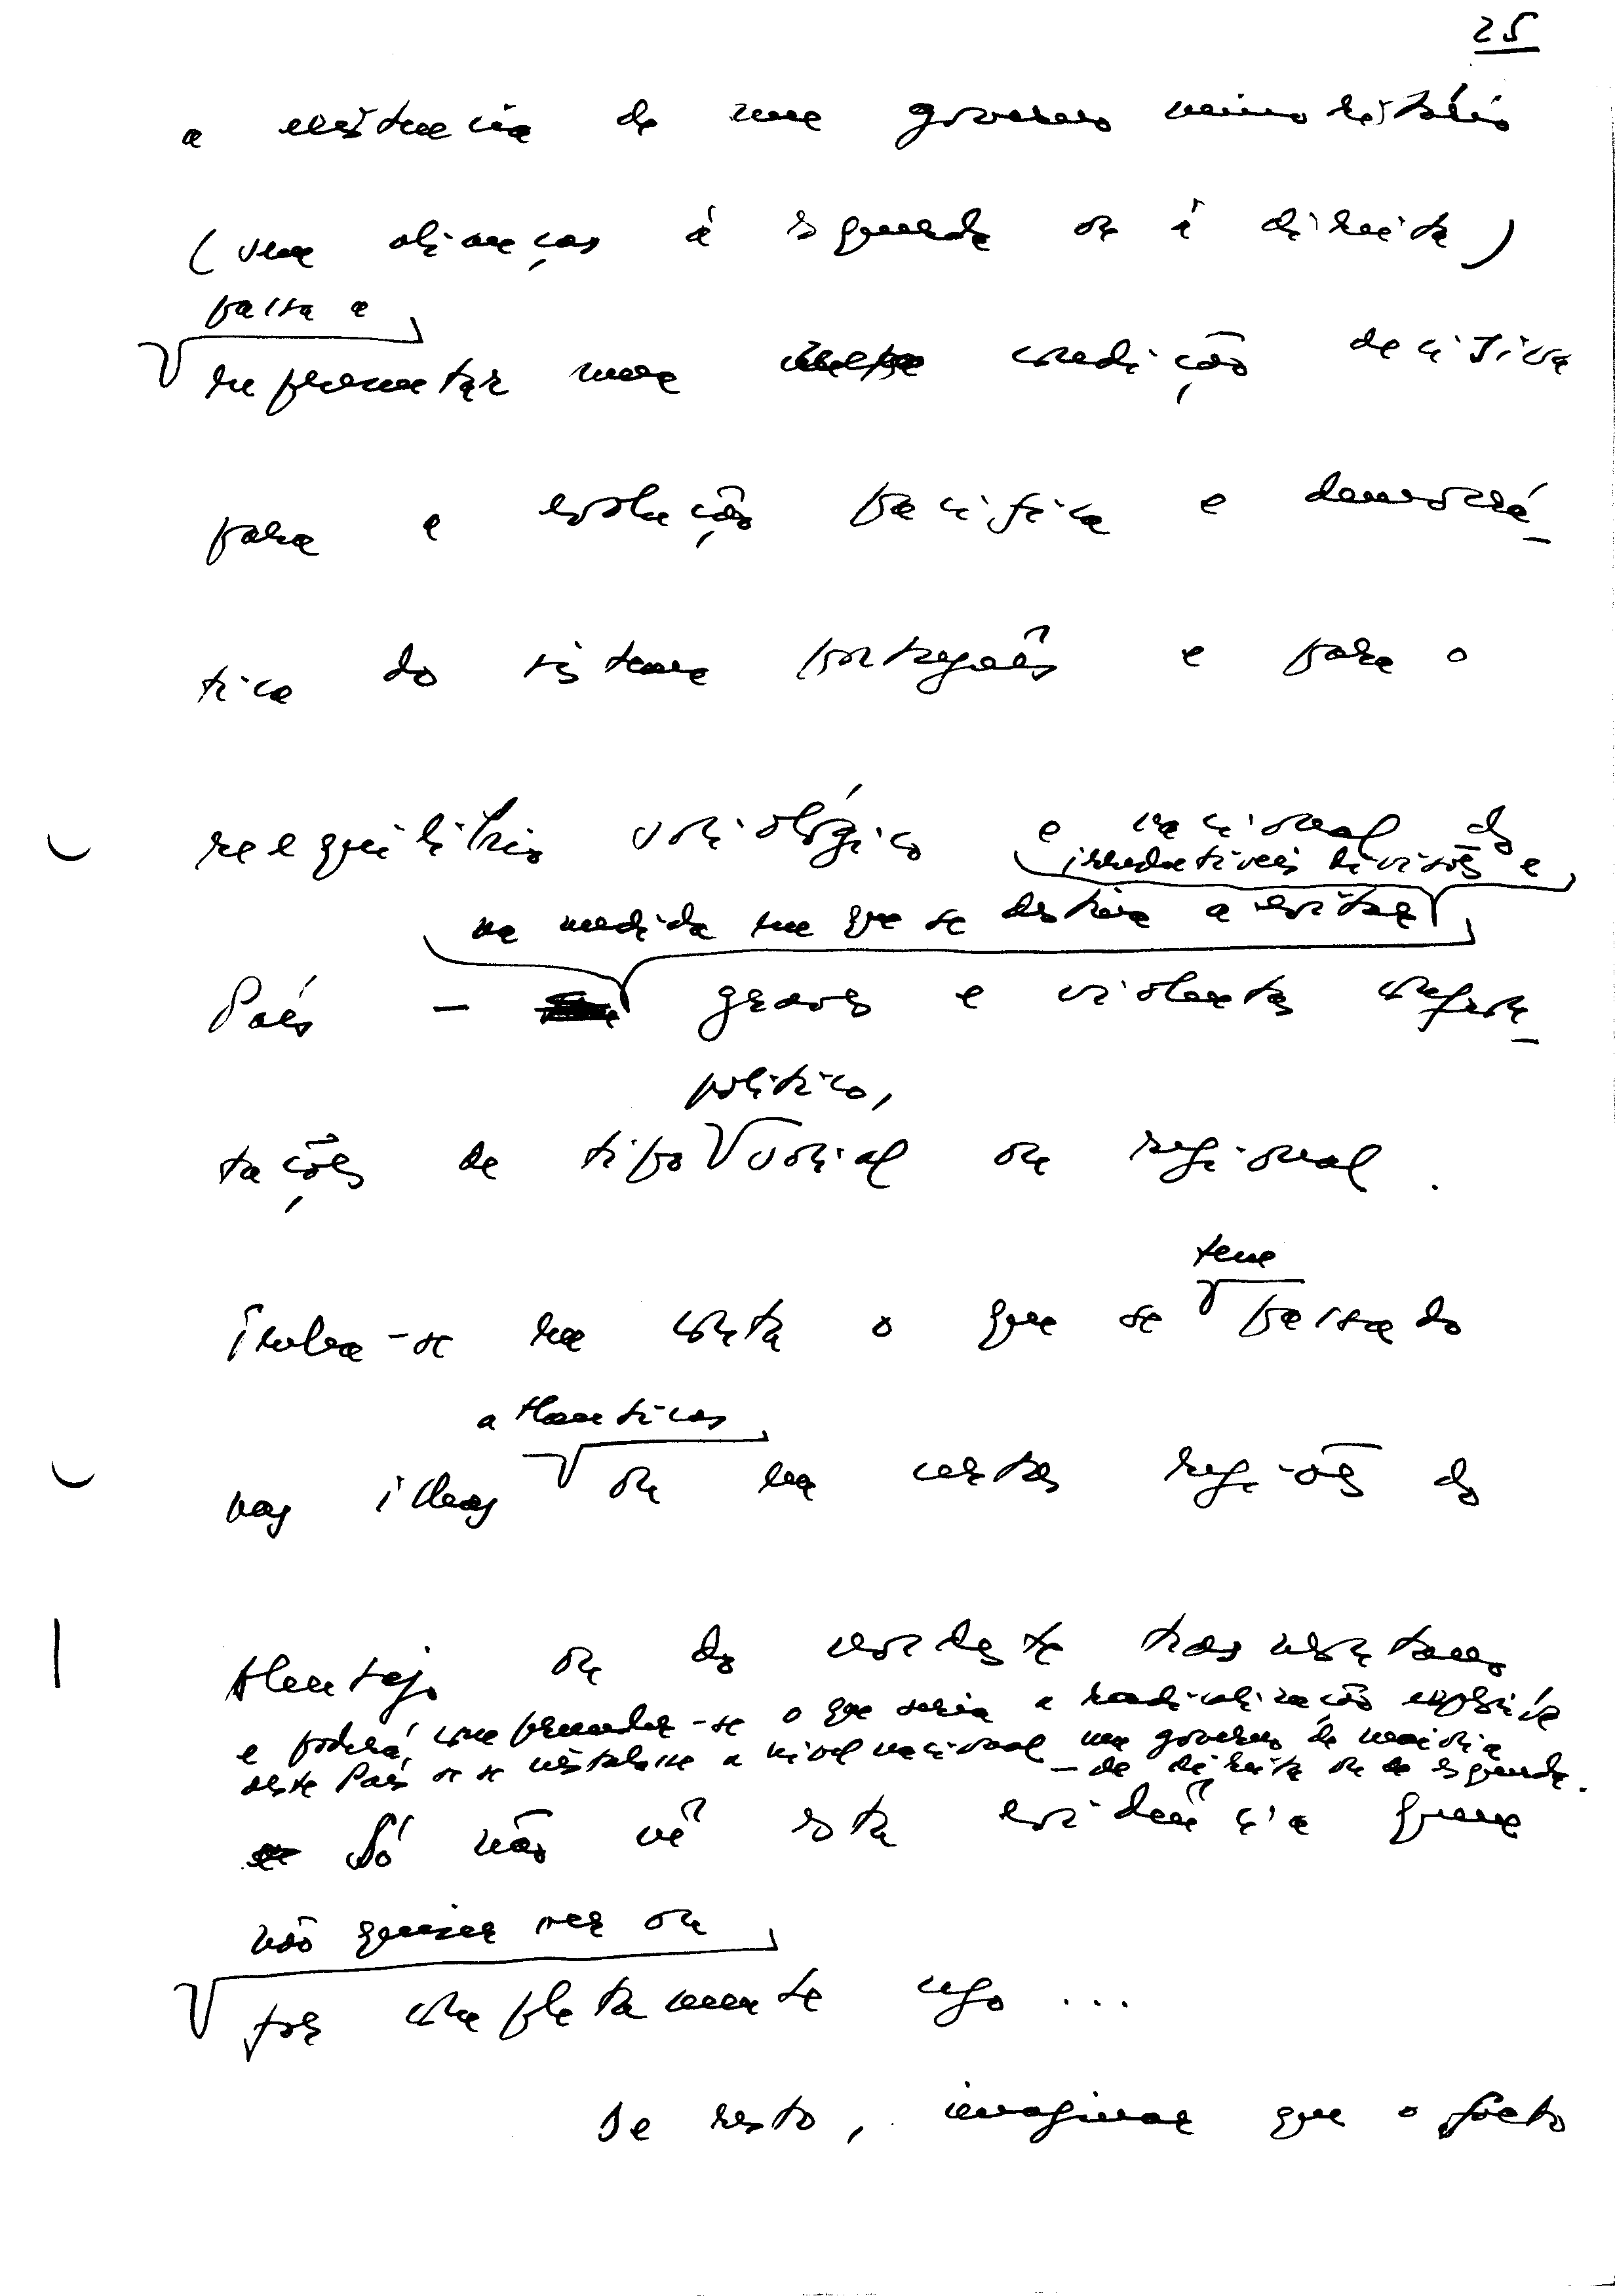 25
a existência de um governo minoritário
(sem alianças à esquerda ou à direita)
passa a
representar uma condição decisiva
para a evolução pacífica e democrá-
tica do sistema português e para o
reequilíbrio sociológico e nacional do
irredutíveis divisões e
na medida em que se destina a evitar
País - graves e violentas confron-
tações de tipo social ou regional.
político,
tem
Tenha-se em conta o que se passado
atlânticas
nas ilhas ou em certas regiões do
Alentejo ou do nordeste trasmontano
e poderá compreender-se o que seria a radicalização explosiva
deste País se se instalasse a nível nacional um governo de maioria
- de direita ou de esquerda.
Só não vê esta evidência quem
não quiser ver ou
for completamente cego ...
De resto, imaginar que o facto